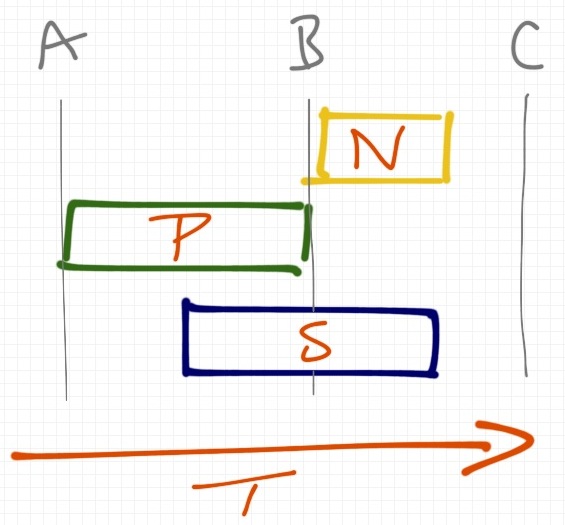 A B C
N
P
S
T